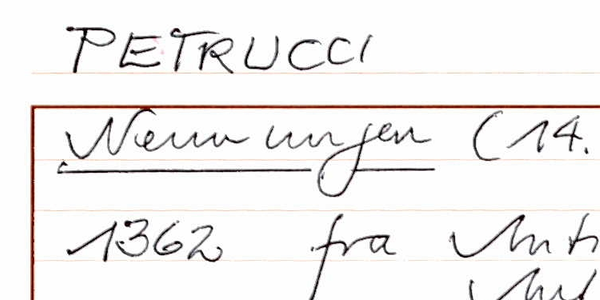 PETRUCCI
Nennungen (14.
1362 fra